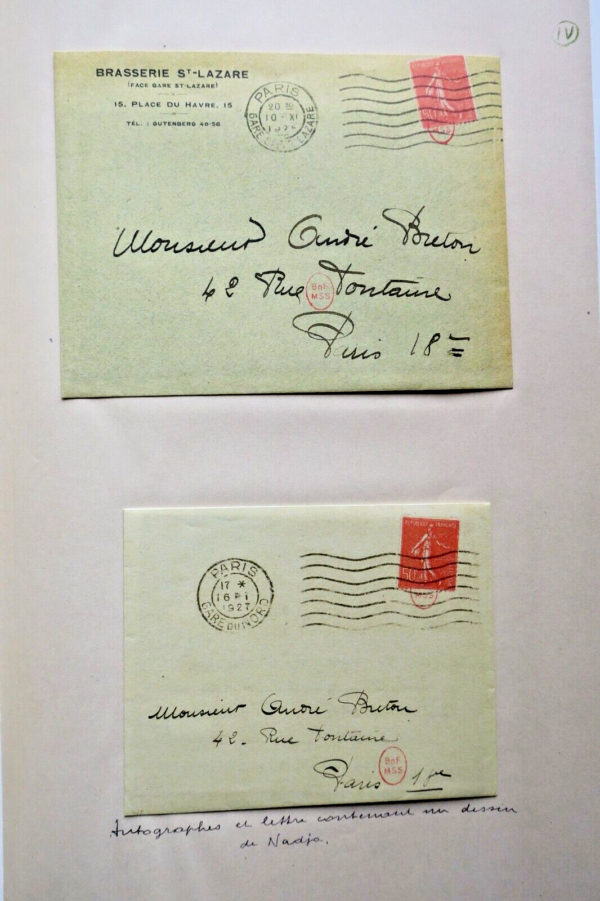 IV
BRASSERIE ST-LAZARE
(FACE GARE ST-LAZARE)
15, PLACE DU HAVRE, 15
TÉL. : GUTENBERG 40-56
PARIS
20
10 · XI
GARE ST LAZARE
Monsieur André Breton
42 Rue Fontaine
BnF
MSS
Paris 18e
REPUBLIQUE FRANÇAISE
50
MSS
PARIS
17 *
16 · I
1927
GARE DU NORD
Monsieur André Breton
42 - Rue Fontaine
BnF
MSS
Paris 18e
Autographes et lettre contenant un dessin
de Nadja.